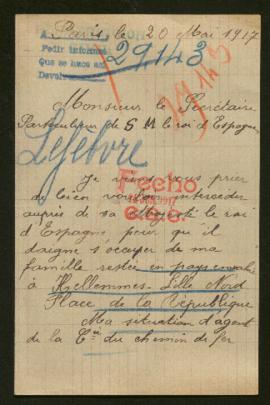 Paris le 20 Mai 1917
Pedir informe
Que se hace en
29143
29143
Monsieur le Secrétaire
Particulier de S M le roi d'Espagne
Lefebvre
Je viens vous prier
de bien vouloir intercéder
auprès de sa Majesté le roi
d'Espagne pour qu'il
daigne s'occuper de ma
famille restée en pays envahi
à Hellemmes-Lille Nord
Place de la République
Ma situation d'agent
de la Cie du chemin de fer
Fecho